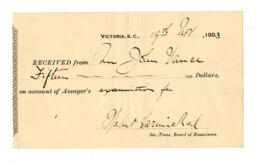 VICTORIA, B. C. 19th Nov 1903
RECEIVED from Mr John Vance
Fifteen Dollars,
on account of Assayer's examination fee
Herbert Carmichael
Sec.-Treas. Board of Examiners.